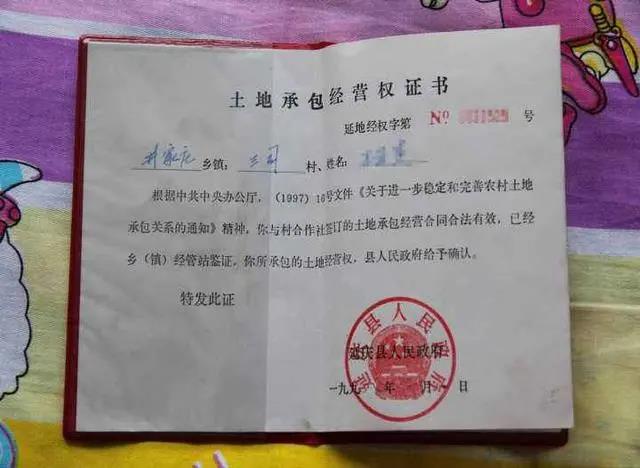 土地承包经营权证书
延地经权字第 № 号
井家庄 乡镇: 三司 村、姓名:
根据中共中央办公厅,(1997)16号文件《关于进一步稳定和完善农村土地
承包关系的通知》精神,你与村合作社签订的土地承包经营合同合法有效,已经
乡(镇)经管站鉴证,你所承包的土地经营权,县人民政府给予确认。
特发此证
延庆县人民政府
延庆县人民政府
一九九 年 月 日